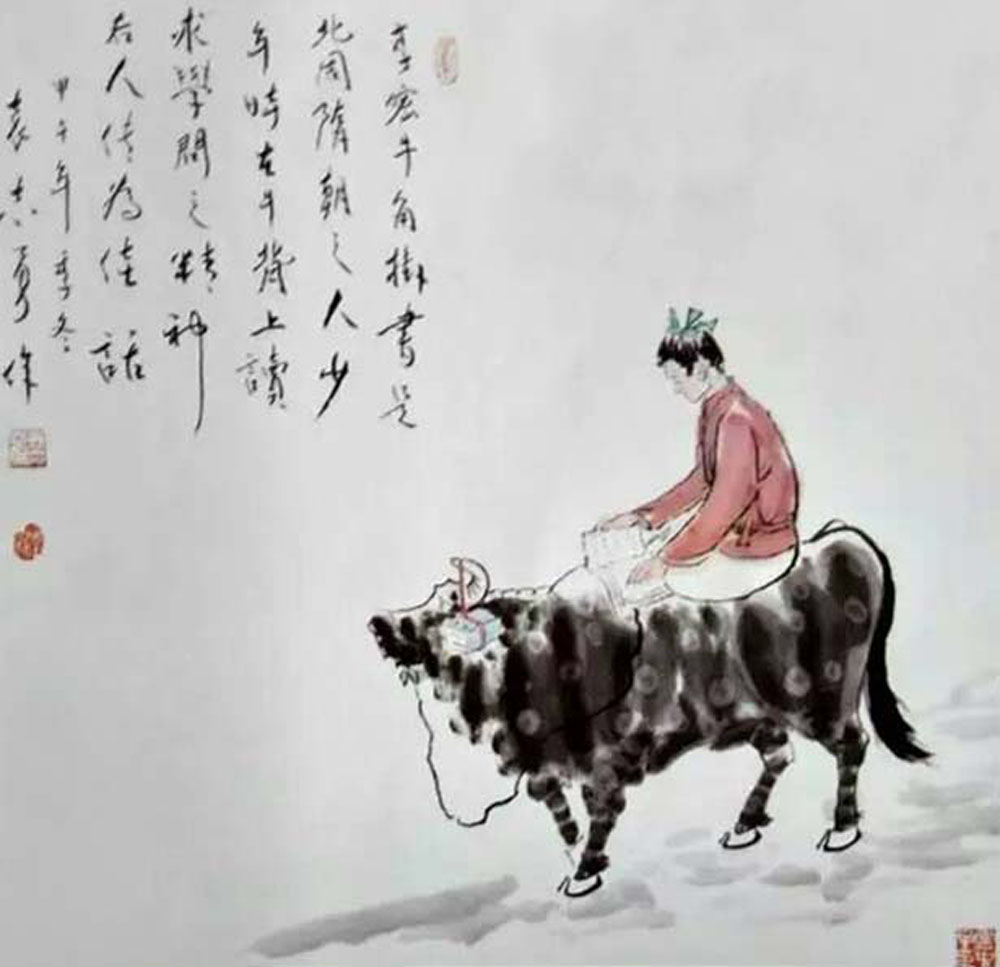 李密牛角掛書是
北周隋朝之人少
年時在牛背上讀
求學問之精神
后人传為佳話
甲午年季冬
袁志勇作